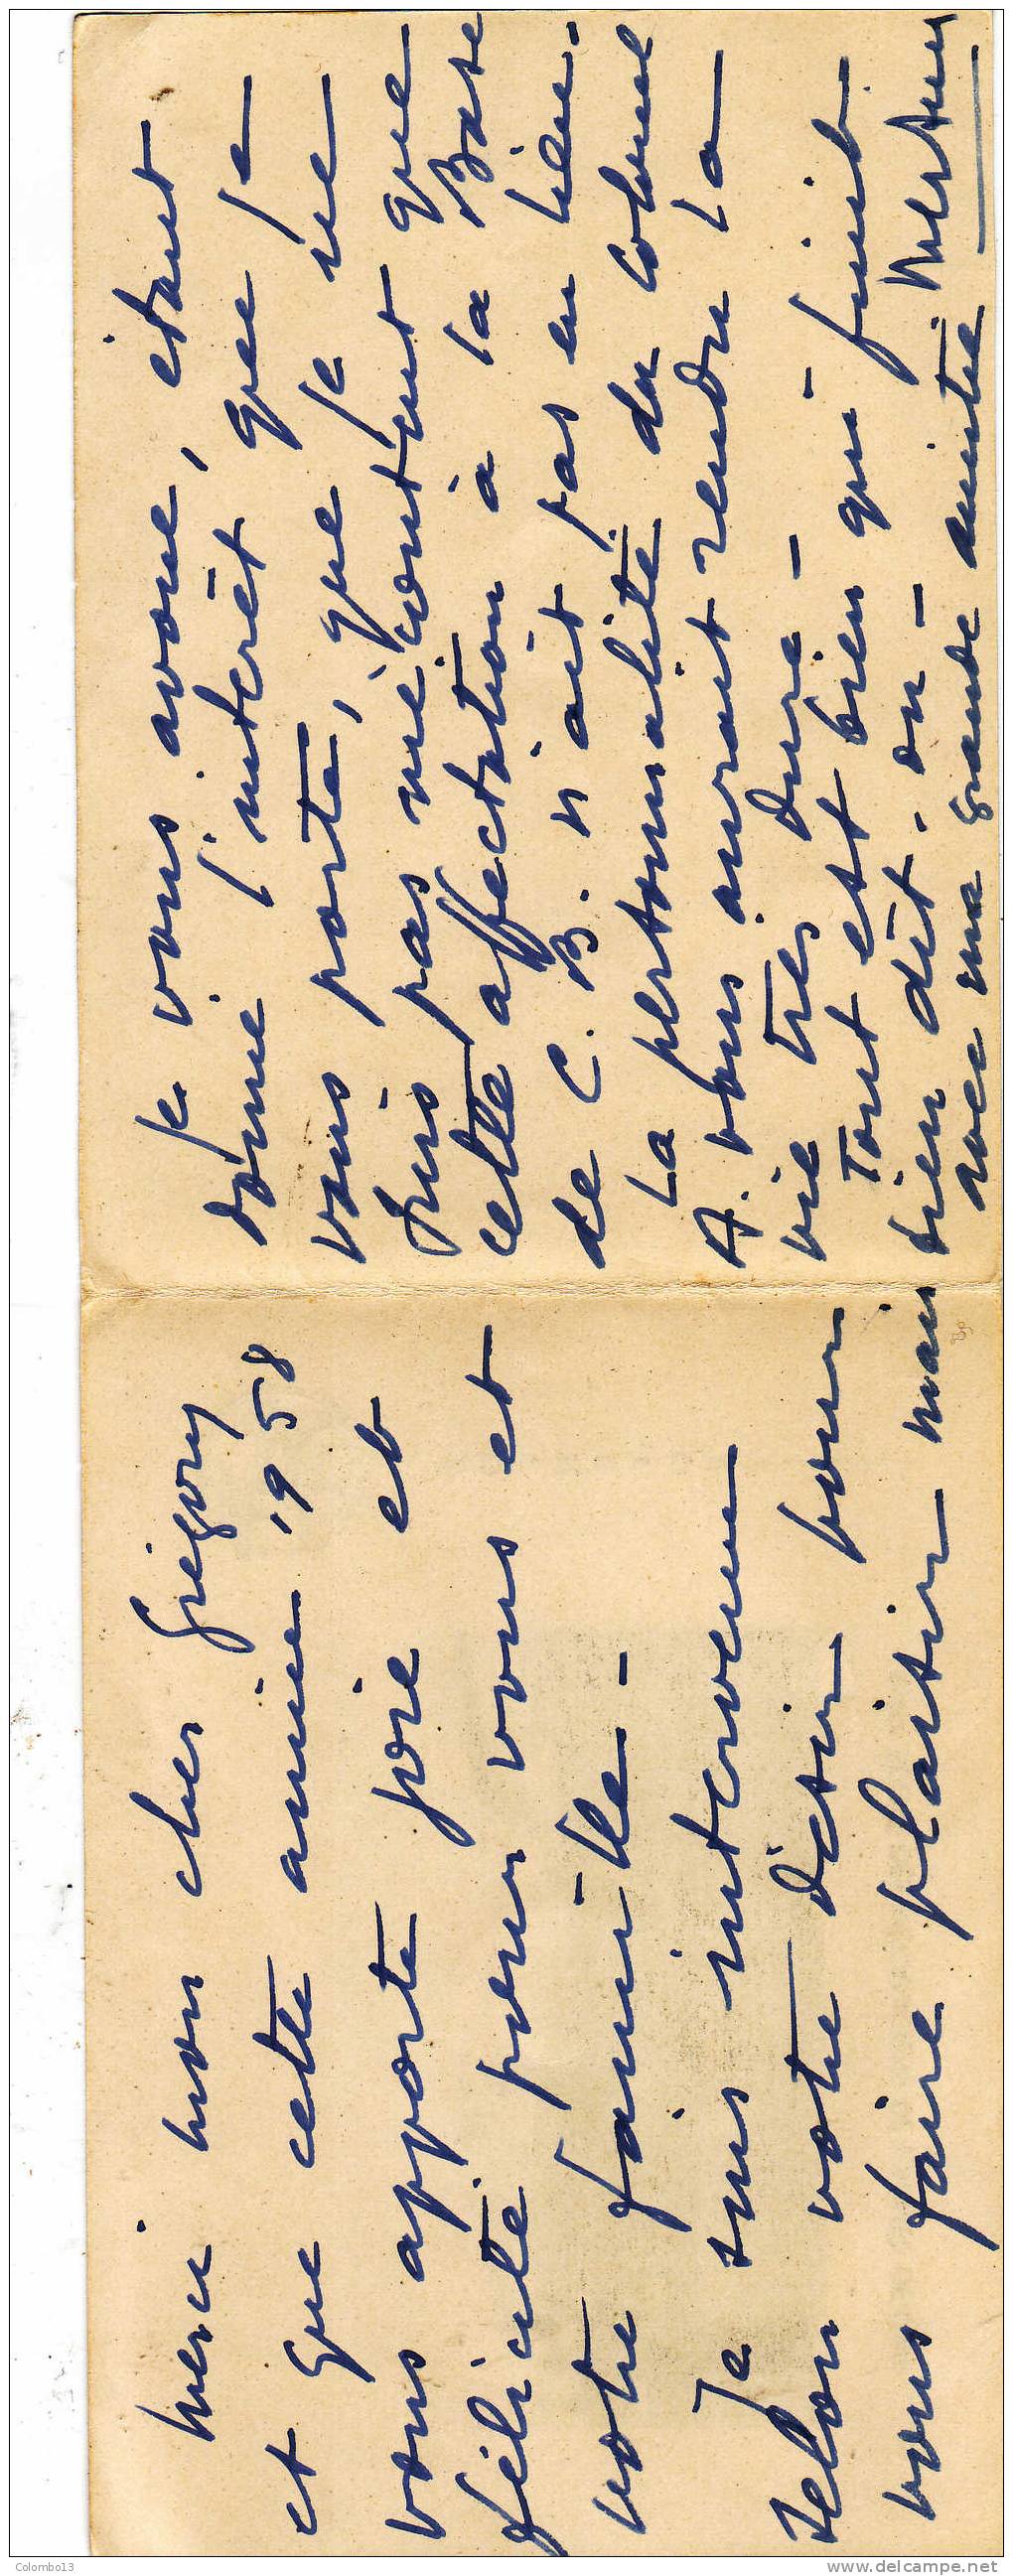 merci mon cher Grégory
et que cette année 1958
vous apporte joie et
félicité pour vous et
votre famille -
Je suis intervenu
selon votre désir pour
vous faire plaisir mais
je vous avoue, étant
donné l'intérêt que je
vous porte, que je ne
suis pas mécontent que
cette affectation à la Base
de C. B. n'ait pas eu lieu.
La personnalité du colonel
A. vous aurait rendu la
vie très dure -
Tout est bien qui finit
bien dit-on -
avec ma grande amitié
Colombo13
www.delcampe.net